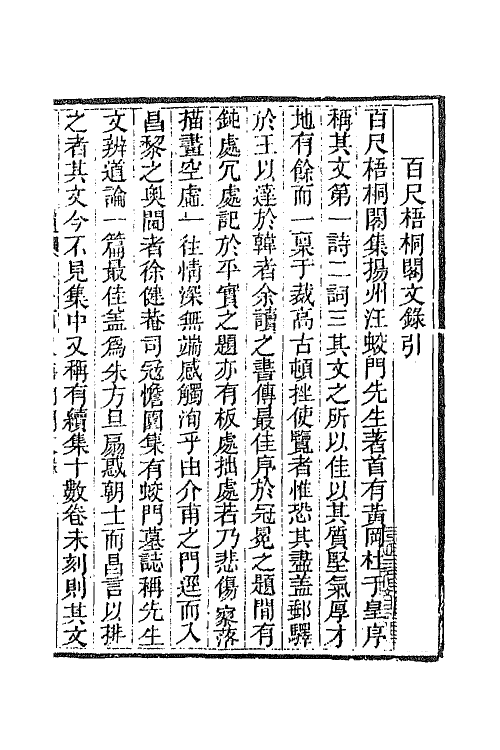 百尺梧桐閣文錄引
百尺梧桐閣集揚州汪蛟門先生著首有黃岡杜于皇序
稱其文第一詩二詞三其文之所以佳以其質堅氣厚才
地有餘而一稟于裁高古頓挫使覽者惟恐其盡蓋郵驛
於王以達於韓者余讀之書傳最佳序於冠冕之題間有
鈍處冗處記於平實之題亦有板處拙處若乃悲傷寥落
描畫空虛一往情深無端感觸洵乎由介甫之門逕而入
昌黎之奧閫者徐健菴司寇憺園集有蛟門墓誌稱先生
文辨道論一篇最佳蓋為朱方旦扇惑朝士而昌言以排
之者其文今不見集中又稱有續集十數卷未刻則其文